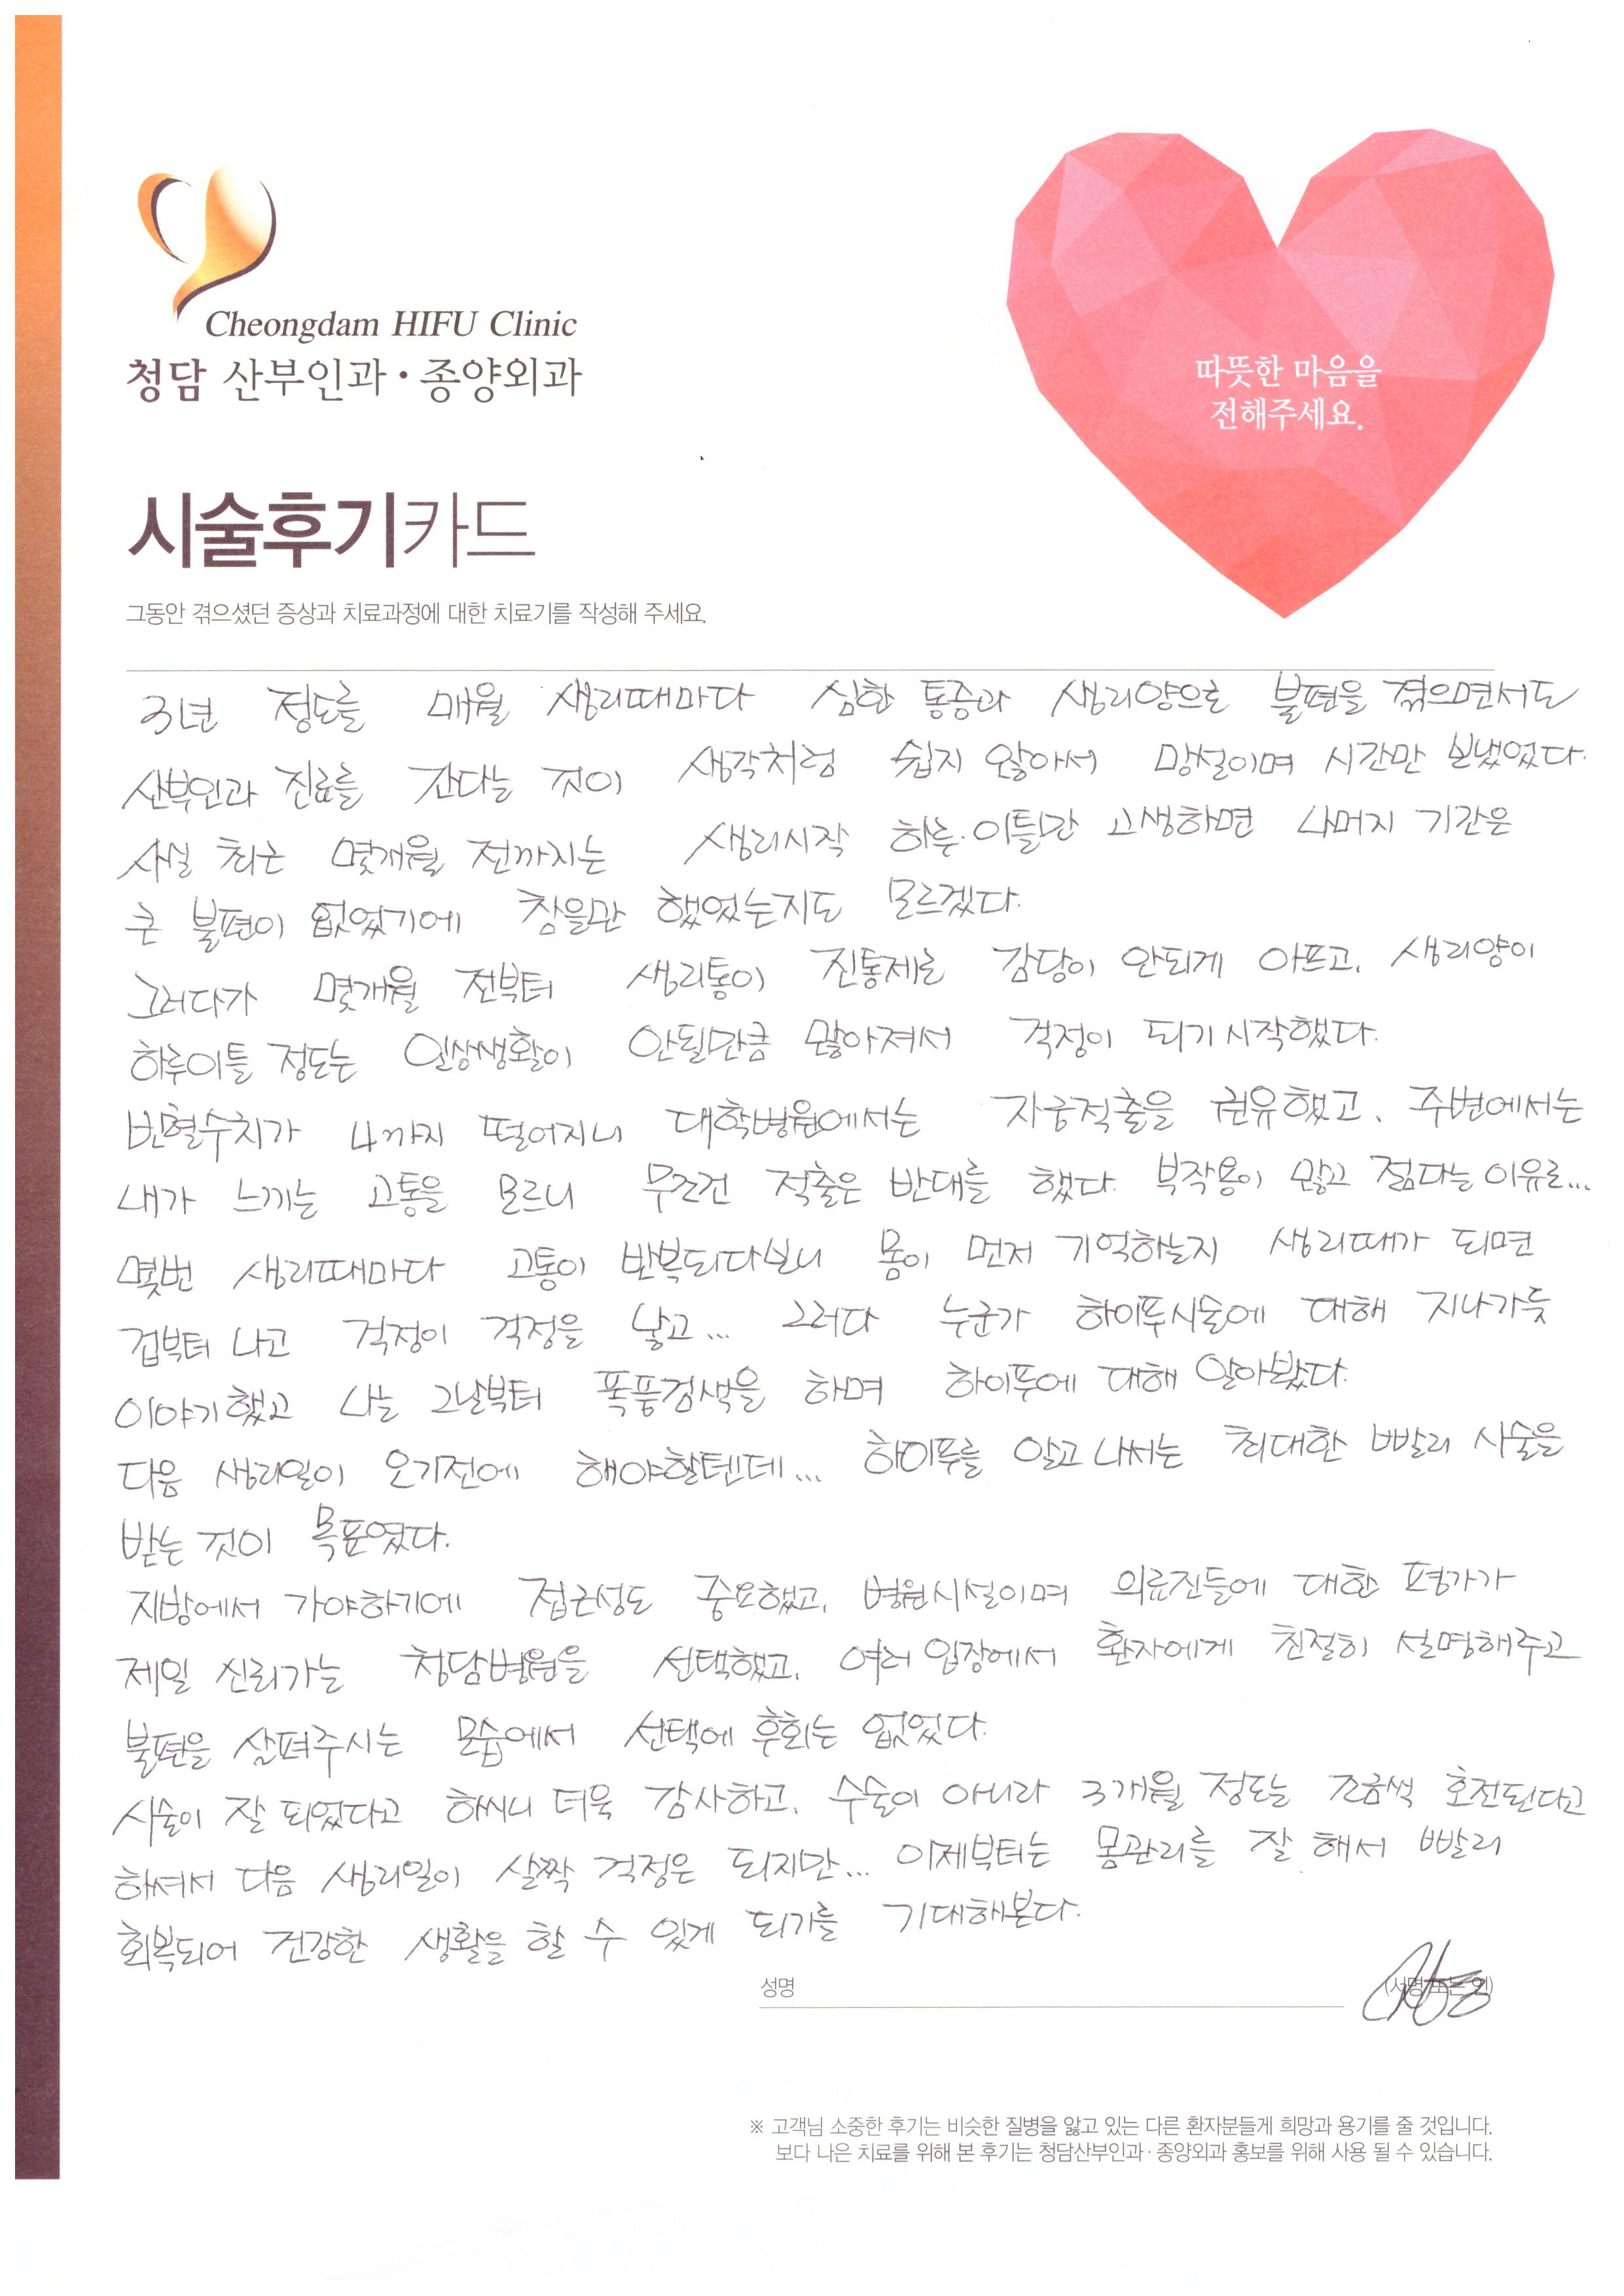 Cheongdam HIFU Clinic
청담 산부인과·종양외과
따뜻한 마음을
전해주세요.
시술후기카드
그동안 겪으셨던 증상과 치료과정에 대한 치료기를 작성해 주세요.
3년 정도를 매월 생리때마다 심한 통증과 생리양으로 불편을 겪으면서도
산부인과 진료를 간다는 것이 생각처럼 쉽지 않아서 망설이며 시간만 보냈었다.
사실 최근 몇개월 전까지는 생리시작 하루.이틀만 고생하면 나머지 기간은
큰 불편이 없었기에 참을만 했었는지도 모르겠다.
그러다가 몇개월 전부터 생리통이 진통제로 감당이 안되게 아프고, 생리양이
하루이틀 정도는 일상생활이 안될만큼 많아져서 걱정이 되기 시작했다.
빈혈수치가 4까지 떨어지니 대학병원에서는 자궁적출을 권유했고, 주변에서는
내가 느끼는 고통을 모르니 무조건 적출은 반대를 했다. 부작용이 많고 젊다는 이유로...
몇번 생리때마다 고통이 반복되다보니 몸이 먼저 기억하는지 생리때가 되면
겁부터 나고 걱정이 걱정을 낳고... 그러다 누군가 하이푸시술에 대해 지나가듯
이야기했고 나는 그날부터 폭풍검색을 하며 하이푸에 대해 알아봤다.
다음 생리일이 오기전에 해야할텐데... 하이푸를 알고 나서는 최대한 빨리 시술을
받는 것이 목표였다.
지방에서 가야하기에 접근성도 중요했고, 병원시설이며 의료진들에 대한 평가가
제일 신뢰가는 청담병원을 선택했고, 여러 입장에서 환자에게 친절히 설명해주고
불편을 살펴주시는 모습에서 선택에 후회는 없었다.
시술이 잘 되었다고 하시니 더욱 감사하고, 수술이 아니라 3개월 정도는 조금씩 호전된다고
하셔서 다음 생리일이 살짝 걱정은 되지만... 이제부터는 몸관리를 잘 해서 빨리
회복되어 건강한 생활을 할 수 있게 되기를 기대해본다.
성명 (서명 또는 인)
※ 고객님 소중한 후기는 비슷한 질병을 앓고 있는 다른 환자분들게 희망과 용기를 줄 것입니다.
보다 나은 치료를 위해 본 후기는 청담산부인과·종양외과 홍보를 위해 사용 될 수 있습니다.